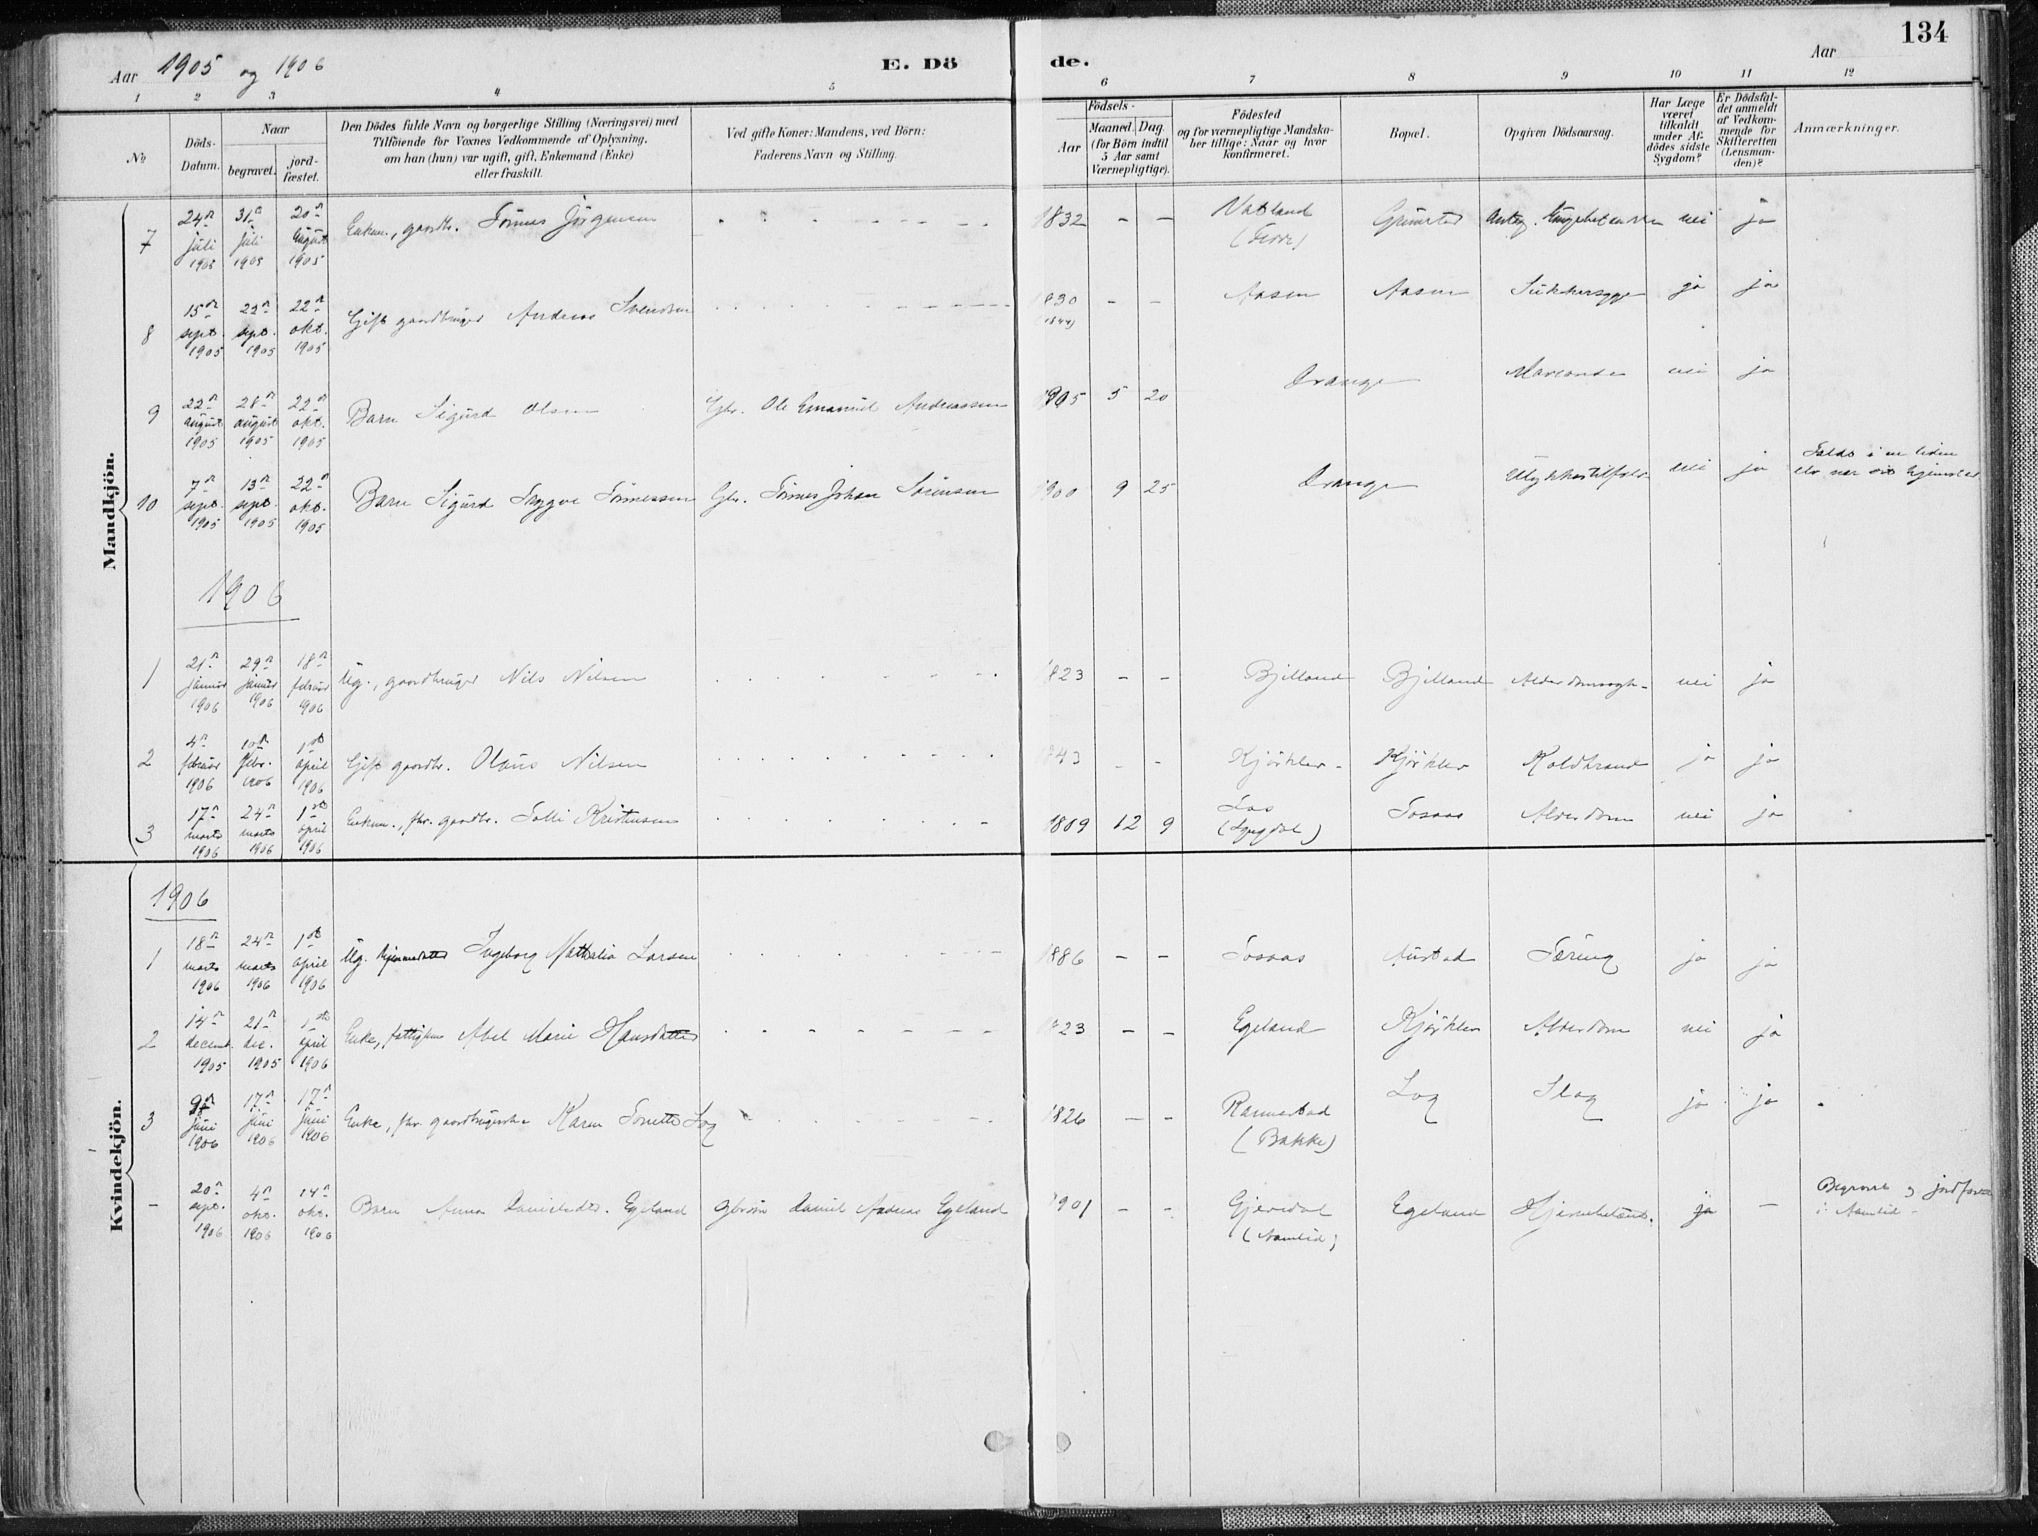 134
Aar 1905 og 1906
E. Döde.
Aar
1 2 3 4 5 6 7 8 9 10 11 12
No
Döds-Datum.
Naar
begravet.
jord-fæstet.
Den Dödes fulde Navn og borgerlige Stilling (Næringsvei) med
Tilföiende for Voxnes Vedkommende af Oplysning,
om han (hun) var ugift, gift, Enkemand (Enke)
eller fraskilt.
Ved gifte Koner: Mandens, ved Börn:
Faderens Navn og Stilling.
Födsels-
Aar
Maaned. Dag.
(for Börn indtil
5 Aar samt
Værnepligtige).
Födested
og for værnepligtige Mandska-
ber tillige: Naar og hvor
konfirmeret.
Bopæl.
Opgiven Dödsaarsag.
Har Læge
været
tilkaldt
under Af-
dödes sidste
Sygdom?
Er Dödsfal-
det anmeldt
af Vedkom-
mende for
Skifteretten
(Lensman-
den)?
Anmærkninger.
Mandkjön.
7 24n juli 1905 31n juli 1905 20n august 1905 Enkem., gaardbr. Tönnes Jörgensen 1832 - - Vatland nei ja
8 15n sept. 1905 22n sept. 1905 22n okt. 1905 Gift gaardbruger Andreas Svendsen 1830 (1844) - - Aasen Aasen Sukkersyge ja ja
9 22n august 1905 28n august 1905 22n okt. 1905 Barn Sigurd Olsen Gbr. Ole Emanuel Andreassen 1905 5 20 Drange nei ja
10 7n sept. 1905 13n sept. 1905 22n okt. 1905 Barn Sigurd Trygve Tönnessen Gbr. Tönnes Johan Sörensen 1900 9 25 Drange Ulykkestilfælde nei ja Faldt i en liden elv nær sit hjemsted
1906
1 21n januar 1906 29n januar 1906 18n februar 1906 Ug., gaardbruger Nils Nilsen 1823 - - Bjelland Bjelland nei ja
2 4n februar 1906 10n febr. 1906 1st april 1906 Gift gaardbr. Olaus Nilsen 1843 - - Kjörkler Kjörkler Koldbrand ja ja
3 17n marts 1906 24n marts 1906 1st april 1906 Enkem., fhv. gaardbr. Tolli Kristensen 1809 12 9 (Lyngdal) Tosaas Alderdom nei ja
Kvindekjön.
1906
1 18n marts 1906 24n marts 1906 1st april 1906 Ug. hjemmedatter Ingeborg Mathalia Larsen 1886 - - Tosaas Austad Tæring ja ja
2 14n decemb. 1905 21n dec. 1905 1st april 1906 Enke, Abel Marie Hansdatter 1823 - - Egeland Kjörkler Alderdom nei ja
3 9n juni 1906 17n juni 1906 17n juni 1906 Enke, fhv. gaardbrugerske Karen Tonette Log 1826 - - (Bakke) Log Slag ja ja
- 20n sept. 1906 4n okt. 1906 14n okt. 1906 Barn Anna Danielsdtr. Egeland Gbr.sön Daniel Andreas Egeland 1901 - - Gjerdal Egeland ja - Begravet og jordfæstet i